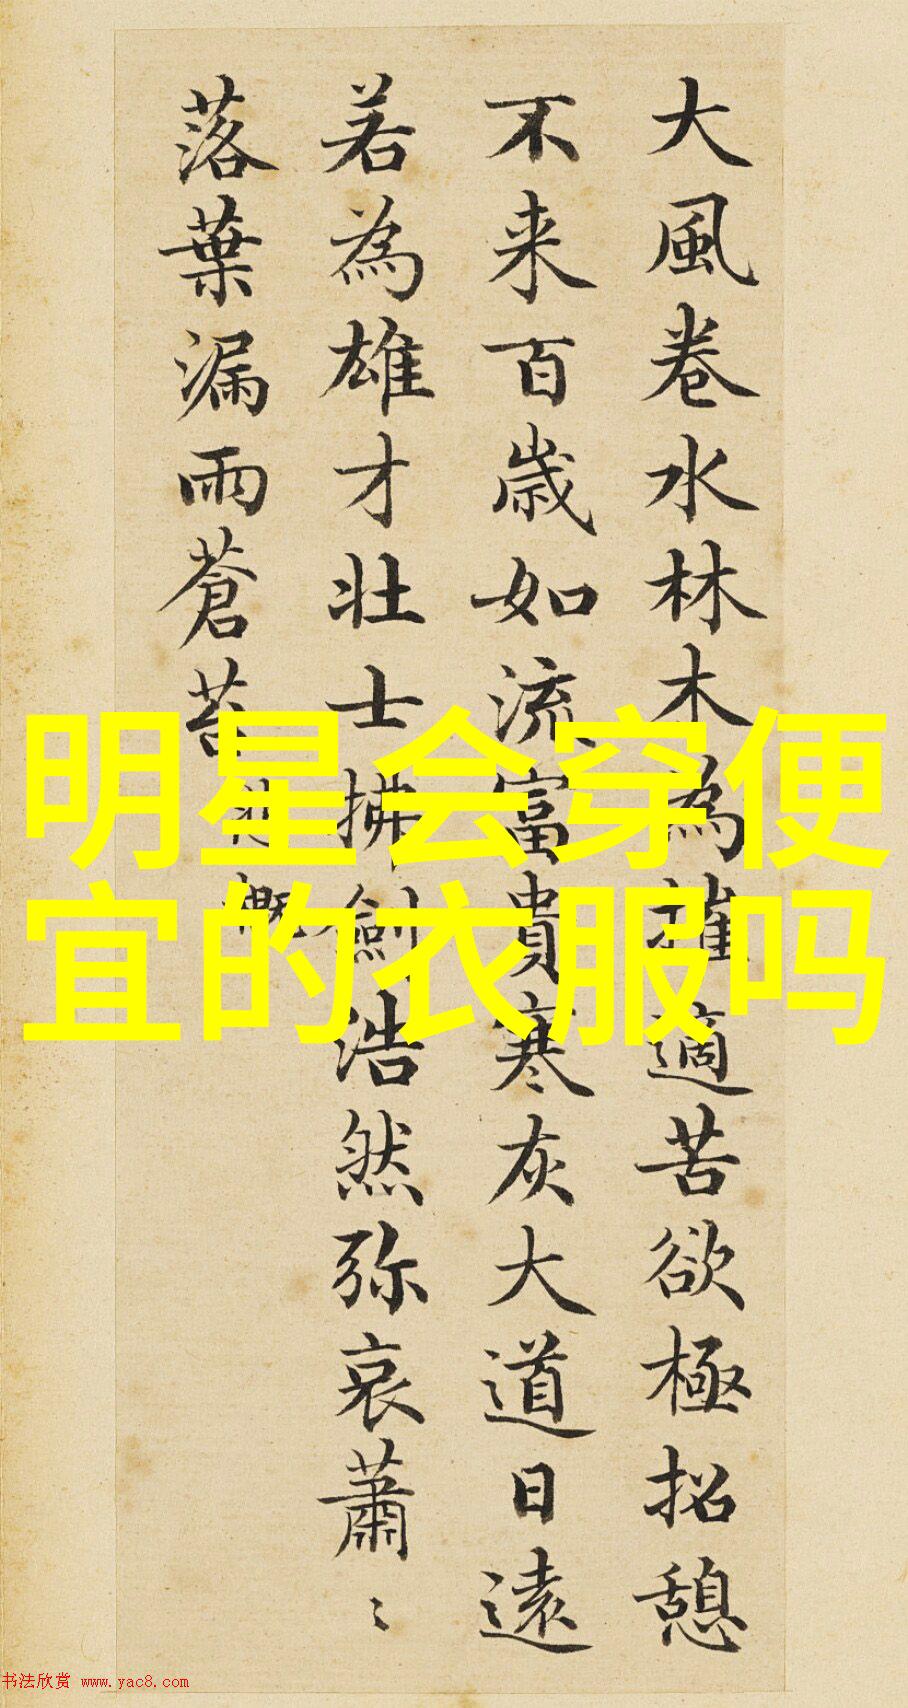 大風卷水林木為摧適苦欲極招憩
不来百歳如流富貴寒灰大道日遠
若為雄才壯士拂劍浩然弥哀蕭〻
落葉漏雨蒼苔 悲慨
明星会穿便
宜的衣服吗
书法欣赏 www.yac8.com